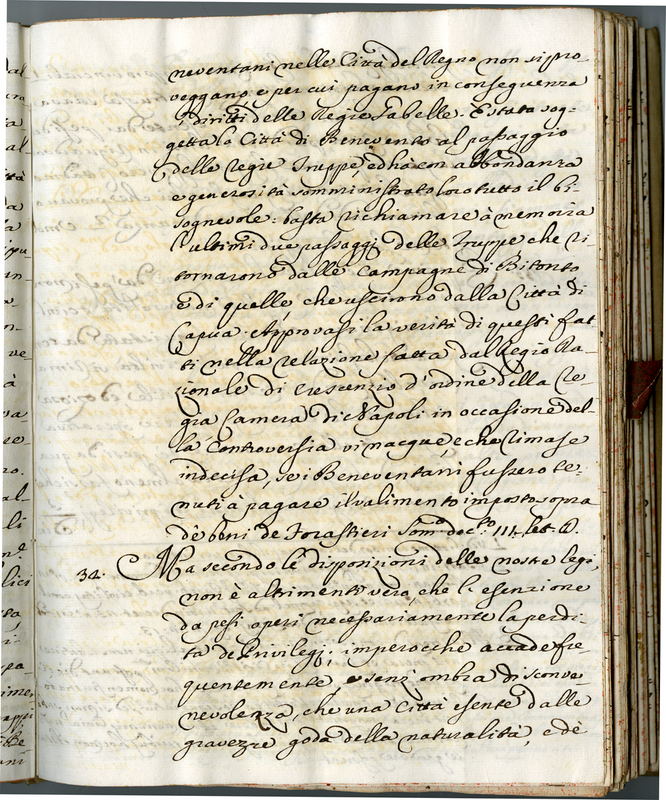 neventani nelle Città del Regno non si pro-
veggano, e per cui pagano in conseguenza
i diritti delle Regie Gabelle. È stata sog-
getta la Città di Benevento al passaggio
delle regie Truppe, ed hà con abbondanza
e generosità somministrato loro tutto il bi-
sognevole: basta richiamare à memoria
l'ultimi due passaggi delle Truppe che ri-
tornarono dalle Campagne di Bitonto
e di quelle che uscirono dalla Città di
Capua. Approvasi la verità di questi fat-
ti nella relazione fatta dal Regio Ra-
zionale di Crescenzio d'ordine della Re-
gia Camera di Napoli in occasione del-
la controversia vi nacque, e che rimase
indecisa, se i Beneventani fussero te-
nuti à pagare il valimento imposto sopra
de beni de Forastieri Som.o doc.o III. let. D.
34. Ma secondo le disposizioni delle nostre leggi,
non è altrimenti vero, che l'esenzione
da pesi operi necessariamente la perdi-
ta de Privilegj; imperocche accade fre-
quentemente, e senz'ombra di sconve-
nevolenza, che una Città esente dalle
gravezze goda della naturalità, e dè